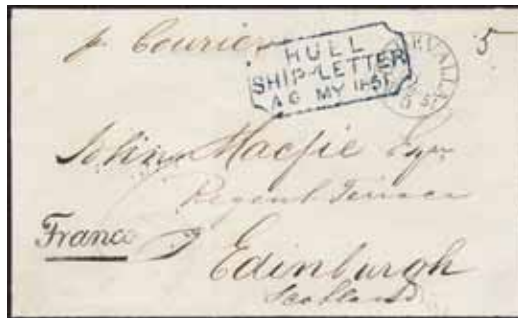 pr Courier
5
HULL
SHIP-LETTER
A G MY 11-51
John Macfie Esqr
Regent Terrace
Franco
Edinburgh
Scotland